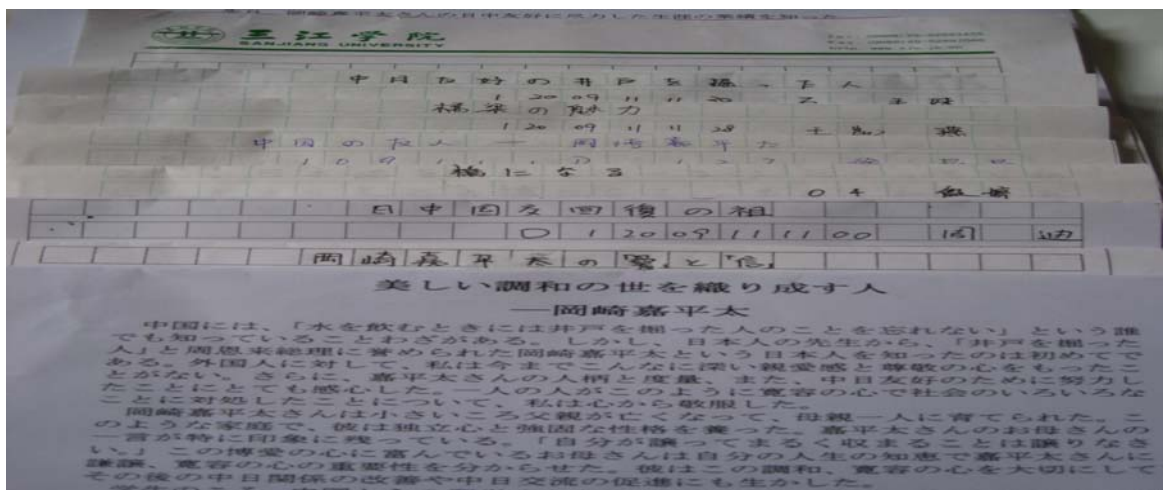 本月、岡崎嘉平太さんの日中友好に尽力した生涯の業績を知った
三江学院
SANJIANG UNIVERSITY
中日友好の井戸を掘った人
橋梁の魅力
中国の友人 — 岡崎嘉平太
橋になる
04
日中国交回復の祖
01200911100 周
岡崎嘉平太の「愛」と「信」
美しい調和の世を織り成す人
—岡崎嘉平太
中国には、「水を飲むときには井戸を掘った人のことを忘れない」という誰
でも知っていることわざがある。しかし、日本人の先生から、「井戸を掘った
人」と周恩来総理に誉められた岡崎嘉平太という日本人を知ったのは初めてで
ある。外国人に対して、私は今までこんなに深い親愛感と尊敬の心をもったこ
とがない。さらに、嘉平太さんの人柄と度量、また、中日友好のために努力し
たことにとても感心した。一人の人がこのように寛容の心で社会のいろいろな
ことに対処したことについて、私は心から敬服した。
岡崎嘉平太さんは小さいころ父親が亡くなって、母親一人に育てられた。こ
のような家庭で、彼は独立心と強固な性格を養った。嘉平太さんのお母さんの
一言が特に印象に残っている。「自分が譲ってまるく収まることは譲りなさ
い。」この博愛の心に富んでいるお母さんは自分の人生の知恵で嘉平太さんに
謙譲、寛容の心の重要性を分からせた。彼はこの調和、寛容の心を大切にして
その後の中日関係の改善や中日交流の促進にも生かした。